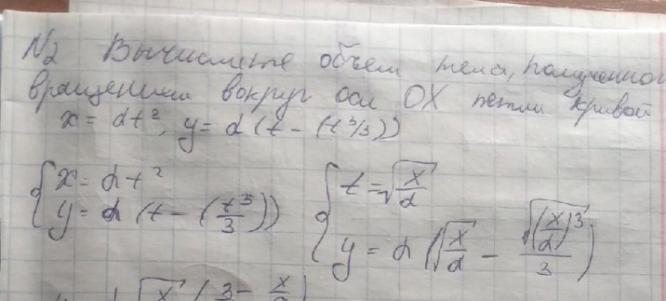 N2 Вычислите объем тела, полученного
вращением вокруг оси OX петли кривой
x = αt², y = α(t - (t³/3))
{ x = αt² { t = √(x/α)
y = α(t - (t³/3)) y = α(√(x/α) - √((x/α)³)/3)
√x (3 - x/